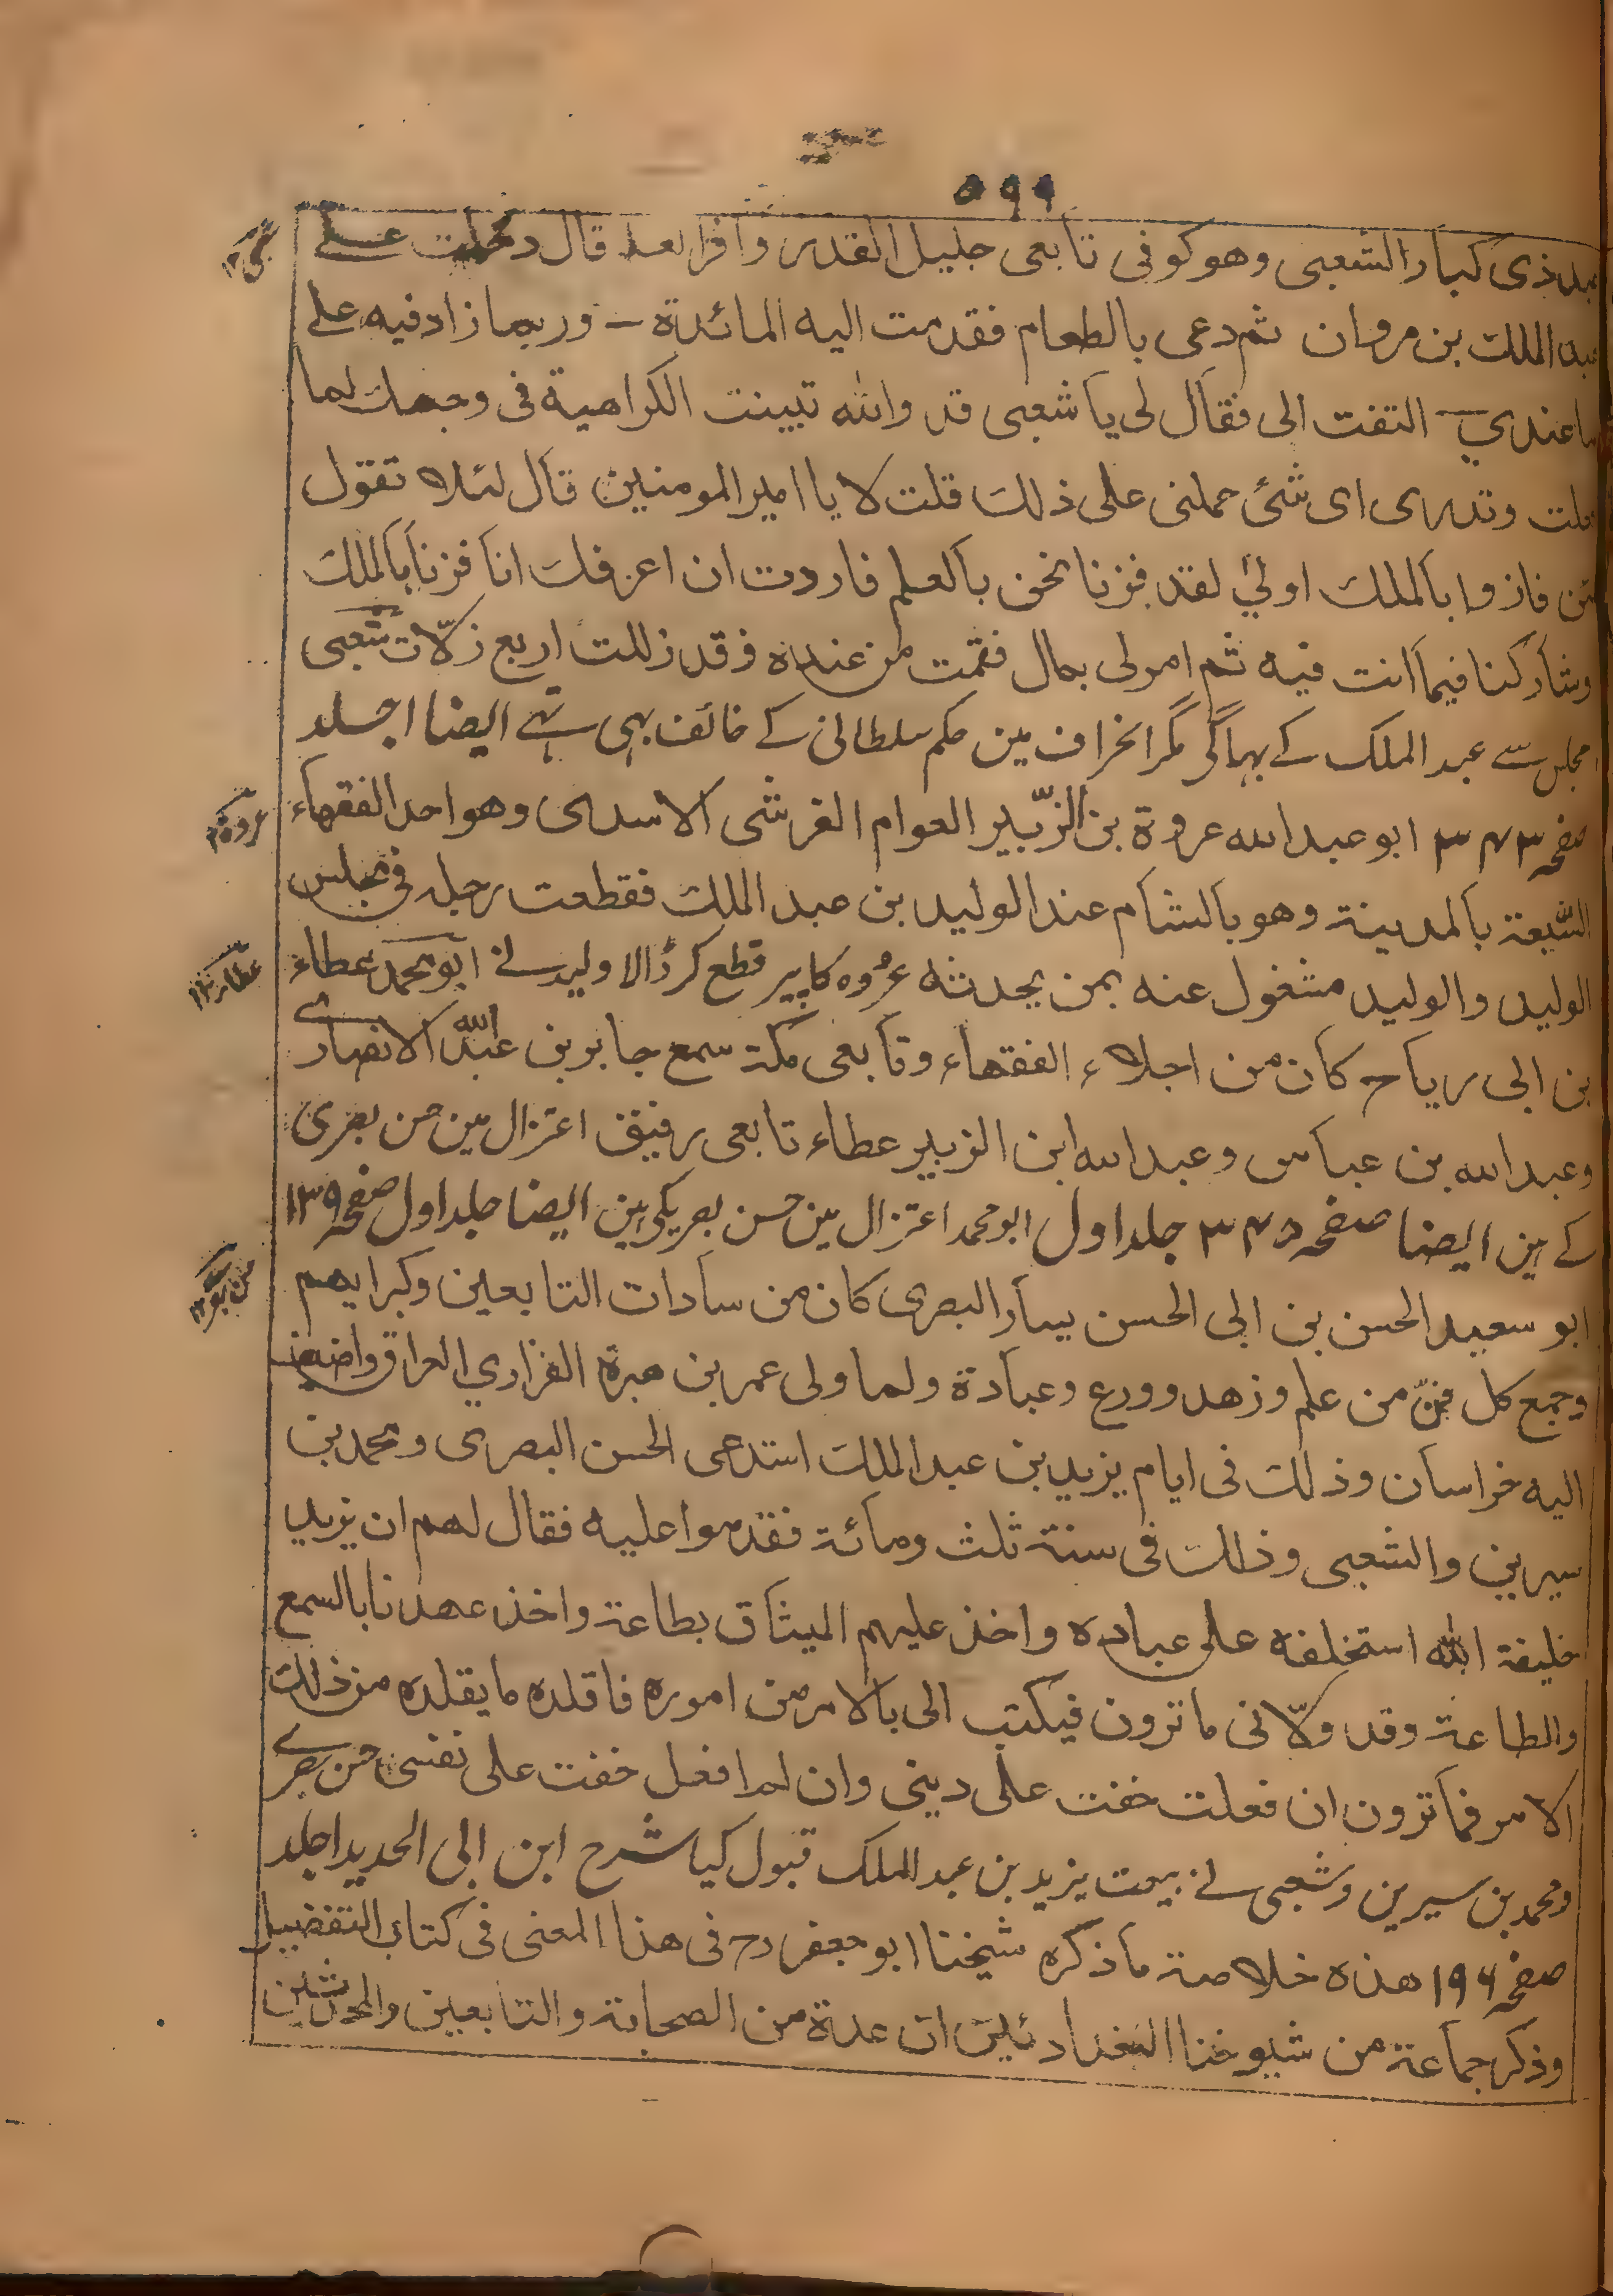 ۵۹۹
عبد ذی کبار الشعبی وهو کوفی تابعی جلیل القدر وافر العلم قال دخلت علے
عبد الملک بن مروان ثم دعی بالطعام فقدمت الیه المائدة – وربما زاد فیه علی
ما عندی – التفت الی فقال لی یا شعبی قد والله تبینت الکراهیة فی وجهک لما
فعلت وتدری ای شئ حملنی علی ذلک قلت لا یا امیر المومنین قال لئلا تقول
لئن فازوا بالملک اولیٰ لقد فزنا نحن بالعلم فاردت ان اعرفک انا فزنا بالملک
وشارکنا فیما انت فیه ثم امر لی بمال فقمت من عنده وقد زللت اربع زلّات شعبی
مجلس سے عبد الملک کے بہاگی مگر انحراف مین حکم سلطانی کے خائف بہی تہے ایضا ا جلد
صفحہ ۳۴۳ ابو عبد الله عروة بن الزّبیر العوام القرشی الاسدی وهو احد الفقهاء
السّبعة بالمدینة وهو بالشام عند الولید بن عبد الملک فقطعت رجله فی مجلس
الولید والولید مشغول عنه بمن یحدثه عروہ کا پیر قطع کر ڈالا ولید نے ابو محمد عطاء
بن ابی ریاح کان من اجلاء الفقهاء وتابعی مکة سمع جابر بن عبد الله الانصاری
وعبد الله بن عباس وعبد الله ابن الزبیر عطاء تابعی رفیق اعتزال مین حسن بصری
کے ہین ایضا صفحہ ۳۴۵ جلد اول ابو محمد اعتزال مین حسن بصریکی ہین ایضا جلد اول صفحہ ۱۳۹
ابو سعید الحسن بن ابی الحسن یسار البصری کان من سادات التابعین وکبرایهم
وجمع کل فنّ من علم وزهد وورع وعبادة ولما ولی عمر بن هبرة الفزاری العراق واضیف
الیه خراسان وذلک فی ایام یزید بن عبد الملک استدعی الحسن البصری ومحمد بن
سیرین والشعبی وذلک فی سنة ثلث ومائة فقدموا علیه فقال لهم ان یزید
خلیفة الله استخلفه علی عباده واخذ علیهم المیثاق بطاعة واخذ عهدنا بالسمع
والطاعة وقد ولّانی ما ترون فیکتب الی بالامر من اموره فاقلده ما یقلده من ذلک
الامر فما ترون ان فعلت خفت علی دینی وان لم افعل خفت علی نفسی حسن بصرے
ومحمد بن سیرین وشعبی نے بیعت یزید بن عبد الملک قبول کیا شرح ابن ابی الحدید ا جلد
صفحہ ۱۹۶ هذه خلاصة ما ذکره شیخنا ابو جعفر رح فی هذا المعنی فی کتاب التفضیل
وذکر جماعة من شیوخنا البغدادئین ان عدة من الصحابة والتابعین والمحدثین
عروہ
عطاء